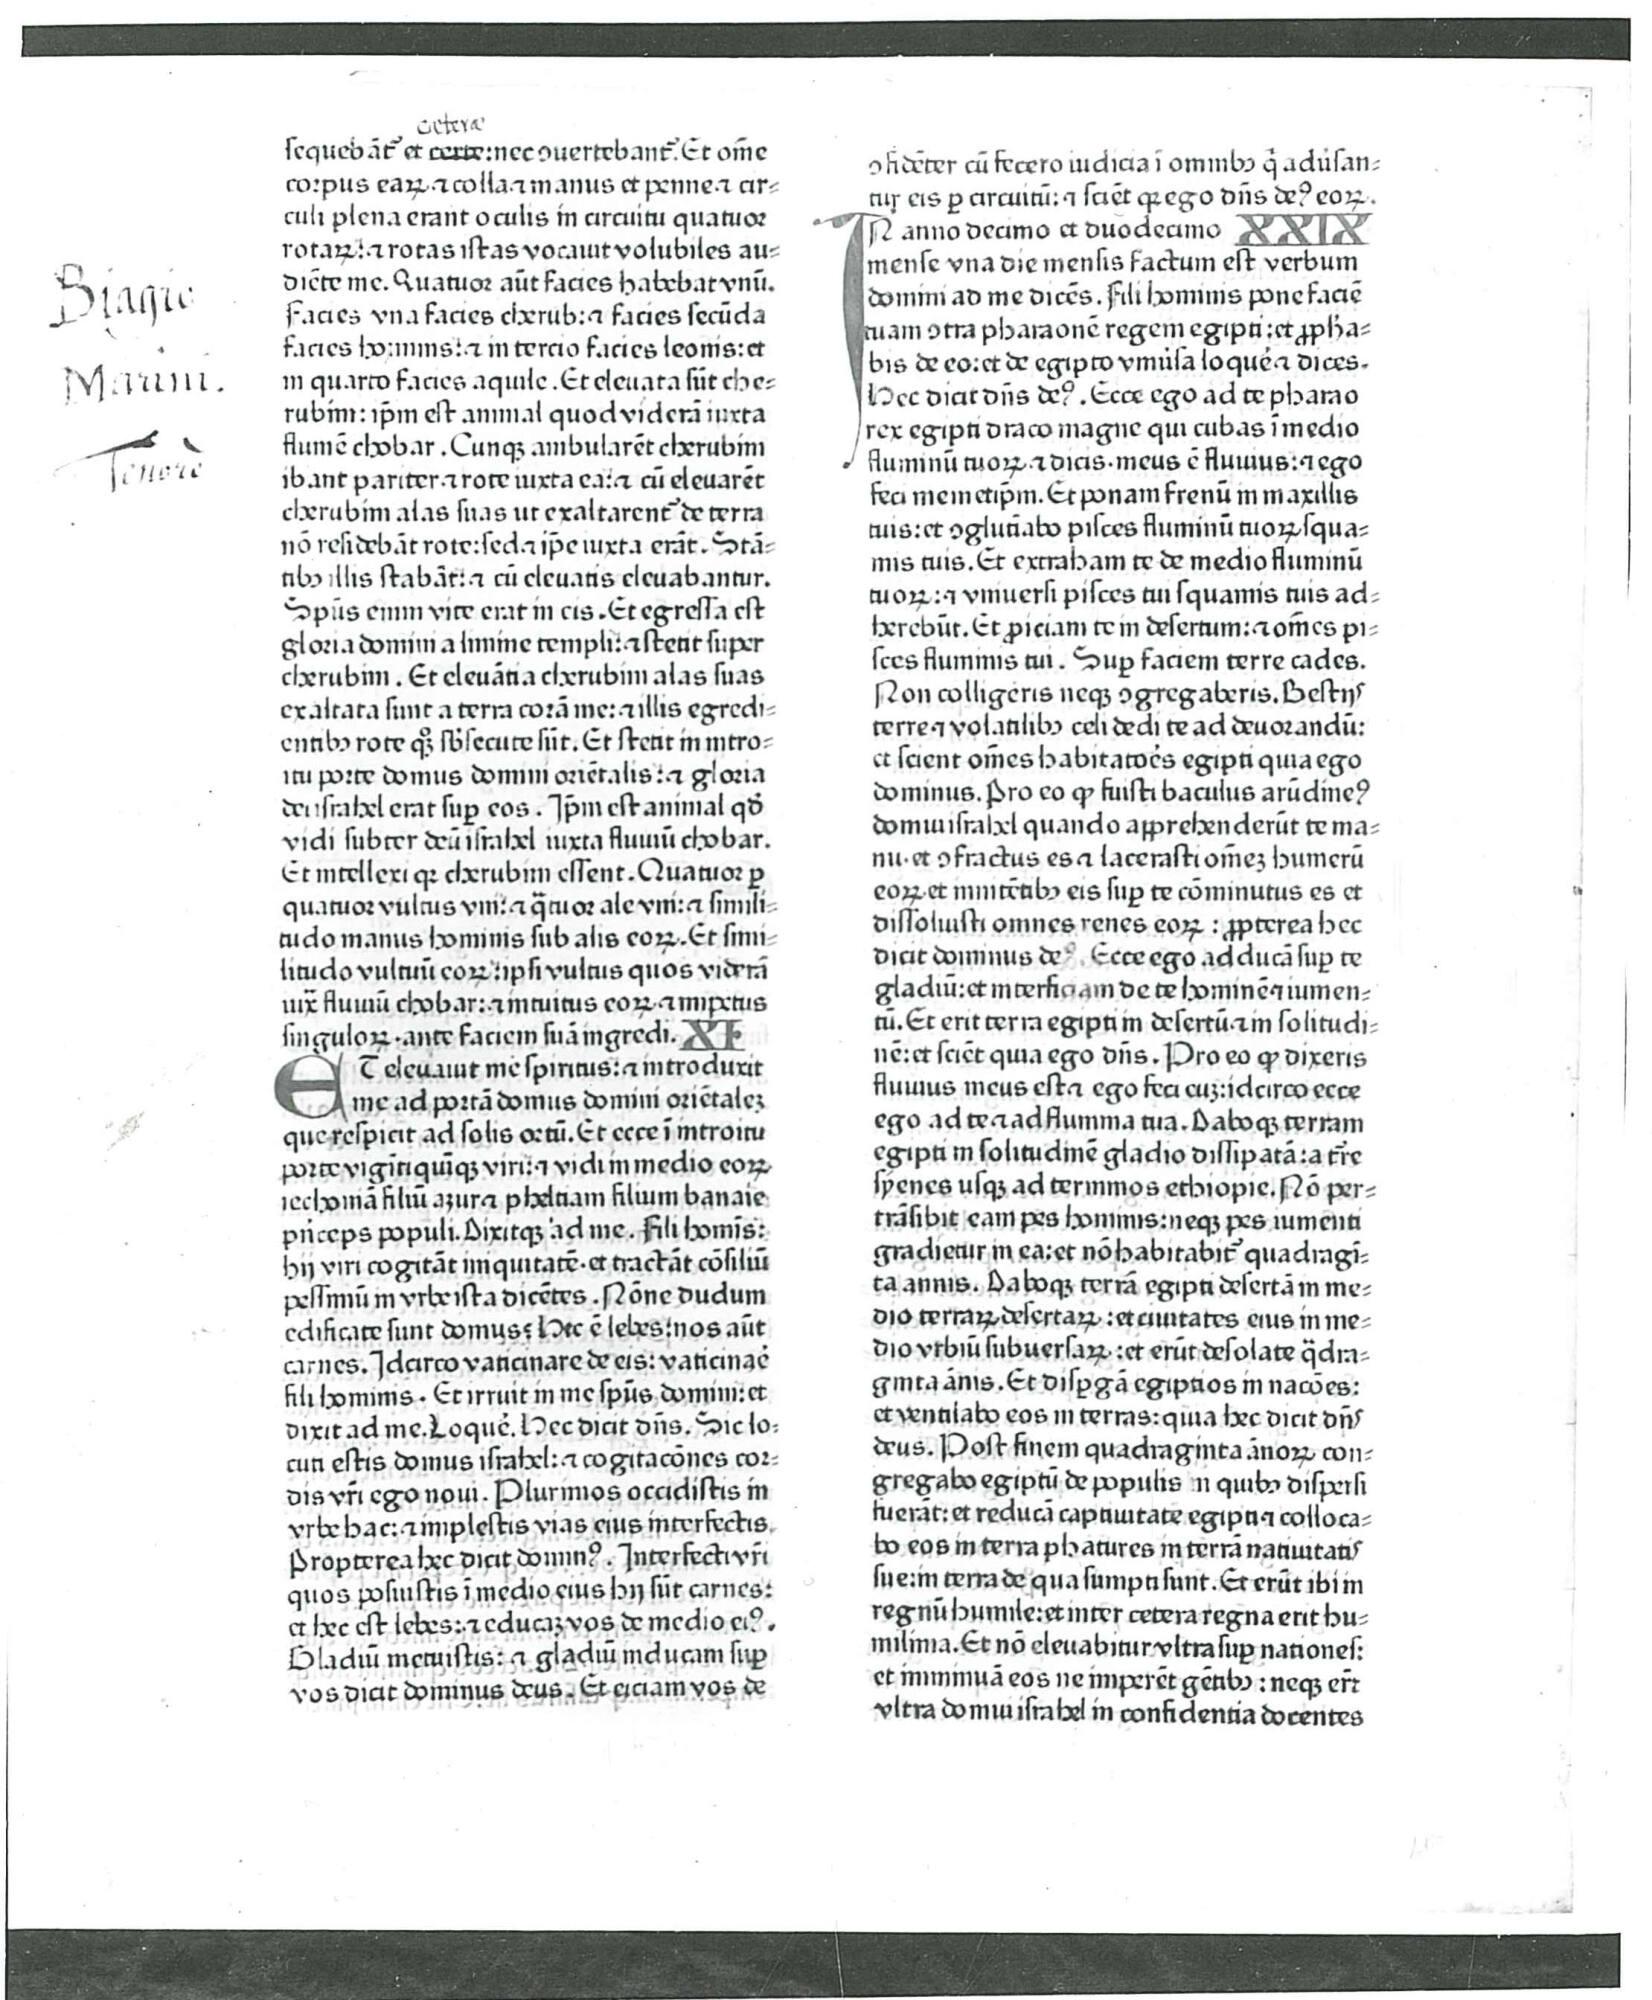 ceteræ
sequebāt᷑ et certe: nec ↄuertebant᷑. Et om̄e
corpus eaꝝ ⁊ colla ⁊ manus et penne ⁊ cir⸗
culi plena erant oculis in circuitu quatuor
rotaꝝ: ⁊ rotas istas vocauit volubiles au⸗
diēte me. Quatuor aūt facies habebat vnū.
Facies vna facies cherub: ⁊ facies secūda
facies hominis: ⁊ in tercio facies leonis: et
in quarto facies aquile. Et eleuata sūt che⸗
rubim: ip̄m est animal quod viderā iuxta
flumē chobar. Cunqꝫ ambularēt cherubim
ibant pariter ⁊ rote iuxta ea: ⁊ cū eleuarēt
cherubim alas suas ut exaltarent᷑ de terra
nō residebāt rote: sed ⁊ ip̄e iuxta erāt. Stā⸗
tibꝰ illis stabāt: ⁊ cū eleuatis eleuabantur.
Spūs enim vite erat in eis. Et egressa est
gloria domini a limine templi: ⁊ stetit super
cherubim. Et eleuātia cherubim alas suas
exaltata sunt a terra corā me: ⁊ illis egredi⸗
entibꝰ rote qꝫ sb̄secute sūt. Et stetit in intro⸗
itu porte domus domini oriētalis: ⁊ gloria
dei israhel erat suꝑ eos. Ip̄m est animal qđ
vidi subter deū israhel iuxta fluuiū chobar.
Et intellexi qꝛ cherubim essent. Quatuor ꝑ
quatuor vultus vni: ⁊ q̄tuor ale vni: ⁊ simili⸗
tudo manus hominis sub alis eoꝝ. Et simi⸗
litudo vultuū eoꝝ: ipsi vultus quos viderā
iux̄ fluuiū chobar: ⁊ intuitus eoꝝ ⁊ impetus
singuloꝝ. ante faciem suā ingredi. XI.
ET eleuauit me spiritus: ⁊ introduxit
me ad portā domus domini oriētaleꝫ
que respicit ad solis ortū. Et ecce ī introitu
porte vigītiquīqꝫ viri: ⁊ vidi in medio eoꝝ
iechoniā filiū azur ⁊ pheltiam filium banaie
pn̄ceps populi. Dixitqꝫ ad me. Fili homīs:
hij viri cogitāt iniquitatē. et tractāt cōsiliū
pessimū in vrbe ista dicētes. Nōne dudum
edificate sunt domus? Hec ē lebes: nos aūt
carnes. Idcirco vaticinare de eis: vaticinaɾ̄
fili hominis. Et irruit in me spūs domini: et
dixit ad me. Loqueɾ̄. Hec dicit dn̄s. Sic lo⸗
cuti estis domus israhel: ⁊ cogitacōnes cor⸗
dis vr̄i ego noui. Plurimos occidistis in
vrbe hac: ⁊ implestis vias eius interfectis.
Propterea hec dicit dominꝰ. Interfecti vr̄i
quos posuistis ī medio eius hij sūt carnes:
et hec est lebes: ⁊ educaꝫ vos de medio eiꝰ.
Gladiū metuistis: ⁊ gladiū inducam suꝑ
vos dicit dominus deus. Et eiciam vos de
Biagio
Marini.
Tenore
ↄfidēter cū fecero iudicia ī omnibꝰ q̄ aduˀsan⸗
tur eis ꝑ circuitū: ⁊ sciēt qꝛ ego dn̄s deꝰ eoꝝ.
IN anno decimo et duodecimo XXIX
mense vna die mensis factum est verbum
domini ad me dicēs. Fili hominis pone faciē
tuam ↄtra pharaonē regem egipti: et ꝓpha⸗
bis de eo: et de egipto vniūsa loqueɾ̄ ⁊ dices.
Hec dicit dn̄s deꝰ. Ecce ego ad te pharao
rex egipti draco magne qui cubas ī medio
fluminū tuoꝝ ⁊ dicis. meus ē fluuius: ⁊ ego
feci memetip̄m. Et ponam frenū in maxillis
tuis: et ↄglutiābo pisces fluminū tuoꝝ squa⸗
mis tuis. Et extraham te de medio fluminū
tuoꝝ: ⁊ vniuersi pisces tui squamis tuis ad⸗
herebūt. Et ꝓiciam te in desertum: ⁊ om̄es pi⸗
sces fluminis tui. Suꝑ faciem terre cades.
Non colligeris neqꝫ ↄgregaberis. Bestijs
terre ⁊ volatilibꝰ celi dedi te ad deuorandū:
et scient om̄es habitatoɾ̄es egipti quia ego
dominus. Pro eo ꝙ fuisti baculus arūdineꝰ
domui israhel quando apprehenderūt te ma⸗
nu. et ↄfractus es ⁊ lacerasti om̄eꝫ humerū
eoꝝ. et innitētibꝰ eis suꝑ te cōminutus es et
dissoluisti omnes renes eoꝝ: ꝓpterea hec
dicit dominus deꝰ. Ecce ego adducā suꝑ te
gladiū: et interficiam de te hominē ⁊ iumen⸗
tū. Et erit terra egipti in desertū ⁊ in solitudi⸗
nē: et sciēt quia ego dn̄s. Pro eo ꝙ dixeris
fluuius meus est ⁊ ego feci euꝫ: idcirco ecce
ego ad te ⁊ ad flumina tua. Daboqꝫ terram
egipti in solitudinē gladio dissipatā: a tr̄re
syenes usqꝫ ad terminos ethiopie. Nō per⸗
trāsibit eam pes hominis: neqꝫ pes iumenti
gradietur in ea: et nō habitabit᷑ quadragī⸗
ta annis. Daboqꝫ terrā egipti desertā in me⸗
dio terraꝝ desertaꝝ: et ciuitates eius in me⸗
dio vrbiū subuersaꝝ: et erūt desolate q̄dra⸗
ginta ānis. Et disꝑgā egiptios in nacōes:
et ventilabo eos in terras: quia hec dicit dn̄s
deus. Post finem quadraginta ānoꝝ con⸗
gregabo egiptū de populis in quibꝰ dispersi
fuerāt: et reducā captiuitatē egipti ⁊ colloca⸗
bo eos in terra phatures in terrā natiuitatis
sue: in terra de qua sumpti sunt. Et erūt ibi in
regnū humile: et inter cetera regna erit hu⸗
milima. Et nō eleuabitur vltra suꝑ nationes:
et imminuā eos ne imperēt gētibꝰ: neqꝫ er̄t
vltra domui israhel in confidentia docentes